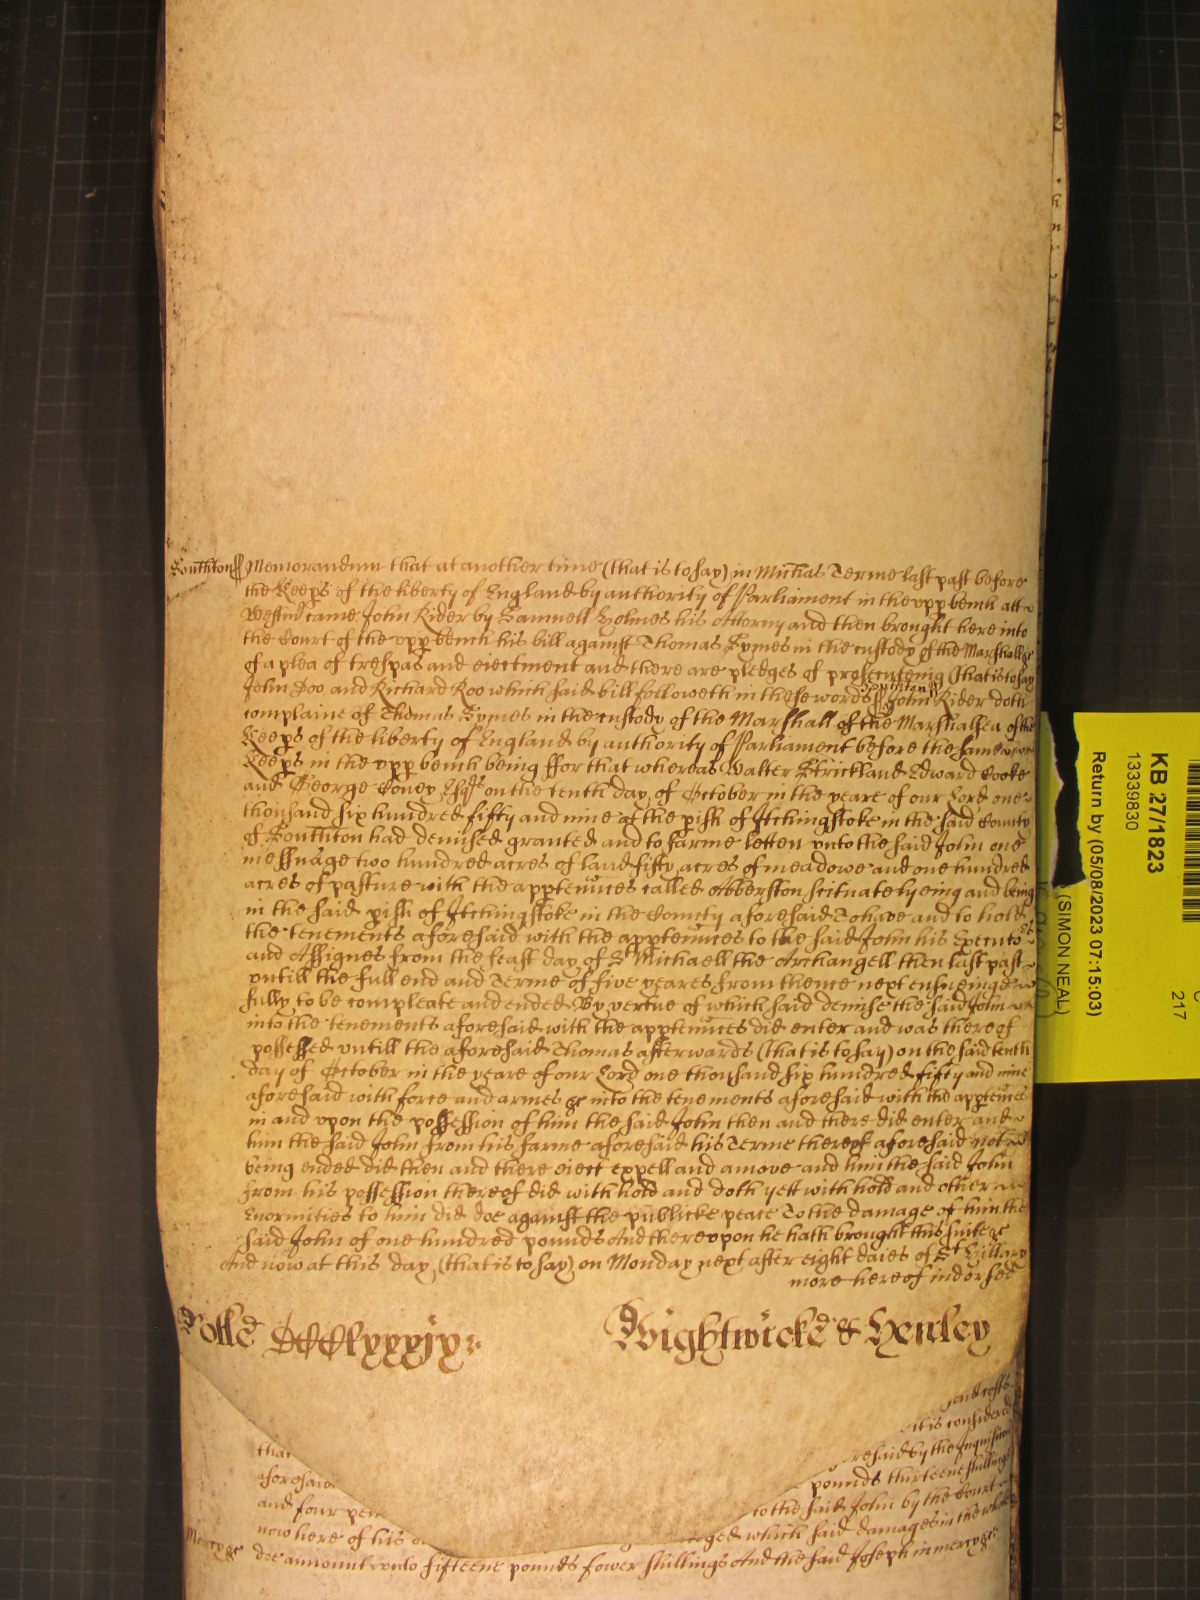 Southton ss Memorandum that at another time (that is to say) in Michas Terme last past before
the Keeps of the liberty of England by authority of Parliament in the upp bench att
Westm came John Rider by Samuell Holmes his Attorny and then brought here into
the Court of the upp bench his bill against Thomas Symes in the custody of the Marshall &c
of a plea of trespas and eiectment and there are pledges of prosecuteing (that is to say
John Doo and Richard Roo which said bill followeth in these words Southton ss John Rider doth
complaine of Thomas Symes in the custody of the Marshall of the Marshalsea of the
Keeps of the liberty of England by authority of Parliament before the same
Keeps in the upp bench being ffor that whereas Walter Strickland Edward Cooke
and George Coney Esqs on the tenth day of October in the yeare of our Lord one
thousand six hundred fifty and nine att the pish of Itchingstoke in the said County
of Southton had demised granted and to farme letten unto the said John one
messuage two hundred acres of land fifty acres of meadowe and one hundred
acres of pasture with the apptenncs called Abberston scituate lyeing and being
in the said pish of Itchingstoke in the County aforesaid To have and to hold
the tenements aforesaid with the apptenncs to the said John his Executors
and Assignes from the feast day of St Michaell the Archangell then last past
untill the full end and Terme of five yeares from thence next ensueing
fully to be compleate and ended By vertue of which said demise the said John
into the tenements aforesaid with the apptenncs did enter and was thereof
possessed untill the aforesaid Thomas afterwards (that is to say) on the said tenth
day of October in the yeare of our Lord one thousand six hundred fifty and nine
aforesaid with force and armes &c into the tenements aforesaid with the apptenncs
in and upon the possession of him the said John then and there did enter and
him the said John from his farme aforesaid his Terme thereof aforesaid not
being ended did then and there eiect expell and amove and him the said John
from his possession thereof did with hold and doth yett with hold and other
Enormities to him did doe against the publicke peace To the damage of him the
said John of one hundred pounds And thereupon he hath brought this suite &c
And now at this day (that is to say) on Monday next after eight daies of St Hillary
more hereof indorsed
Rolle DCCClxxxjx Wightwicke & Henley
said costs
it is considered
that resaid by the Inquisicon
aforesaid pounds thirteene shillings
and four pen to the said John by the Court
now here of his which said damages in the whole
Mercy &c doe amount unto fifteene pounds fower shillings And the said Joseph in mercy &c
KB 27/1823
13339830
Return by (05/08/2023 07:15:03)
(SIMON NEAL)
217